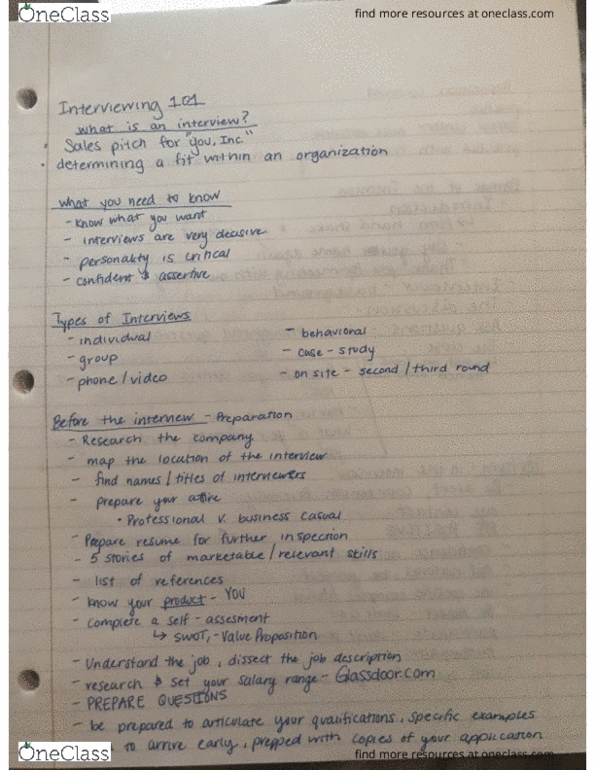 OneClass
find more resources at oneclass.com
Interviewing 101
what is an interview?
Sales pitch for "you, Inc."
· determining a fit within an organization
what you need to know
- Know what you want
- interviews are very decisive
- personality is critical
- confident & assertive
Types of Interviews
- individual
- group
- phone / video
- behavioral
- case - study
- on site - second / third round
Before the interview - Preparation
- Research the company
- map the location of the interview
- find names / titles of interviewers
- prepare your attire
• Professional v. business casual
- Prepare resume for further inspection
- 5 stories of marketable / relevant skills
- list of references
- know your product - YOU
- complete a self - assesment
↳ SWOT, - Value Proposition
- Understand the job, dissect the job description
- research & set your salary range - Glassdoor.com
- PREPARE QUESTIONS
- be prepared to articulate your qualifications, specific examples
to arrive early, prepped with copies of your application
OneClass
find more resources at oneclass.com